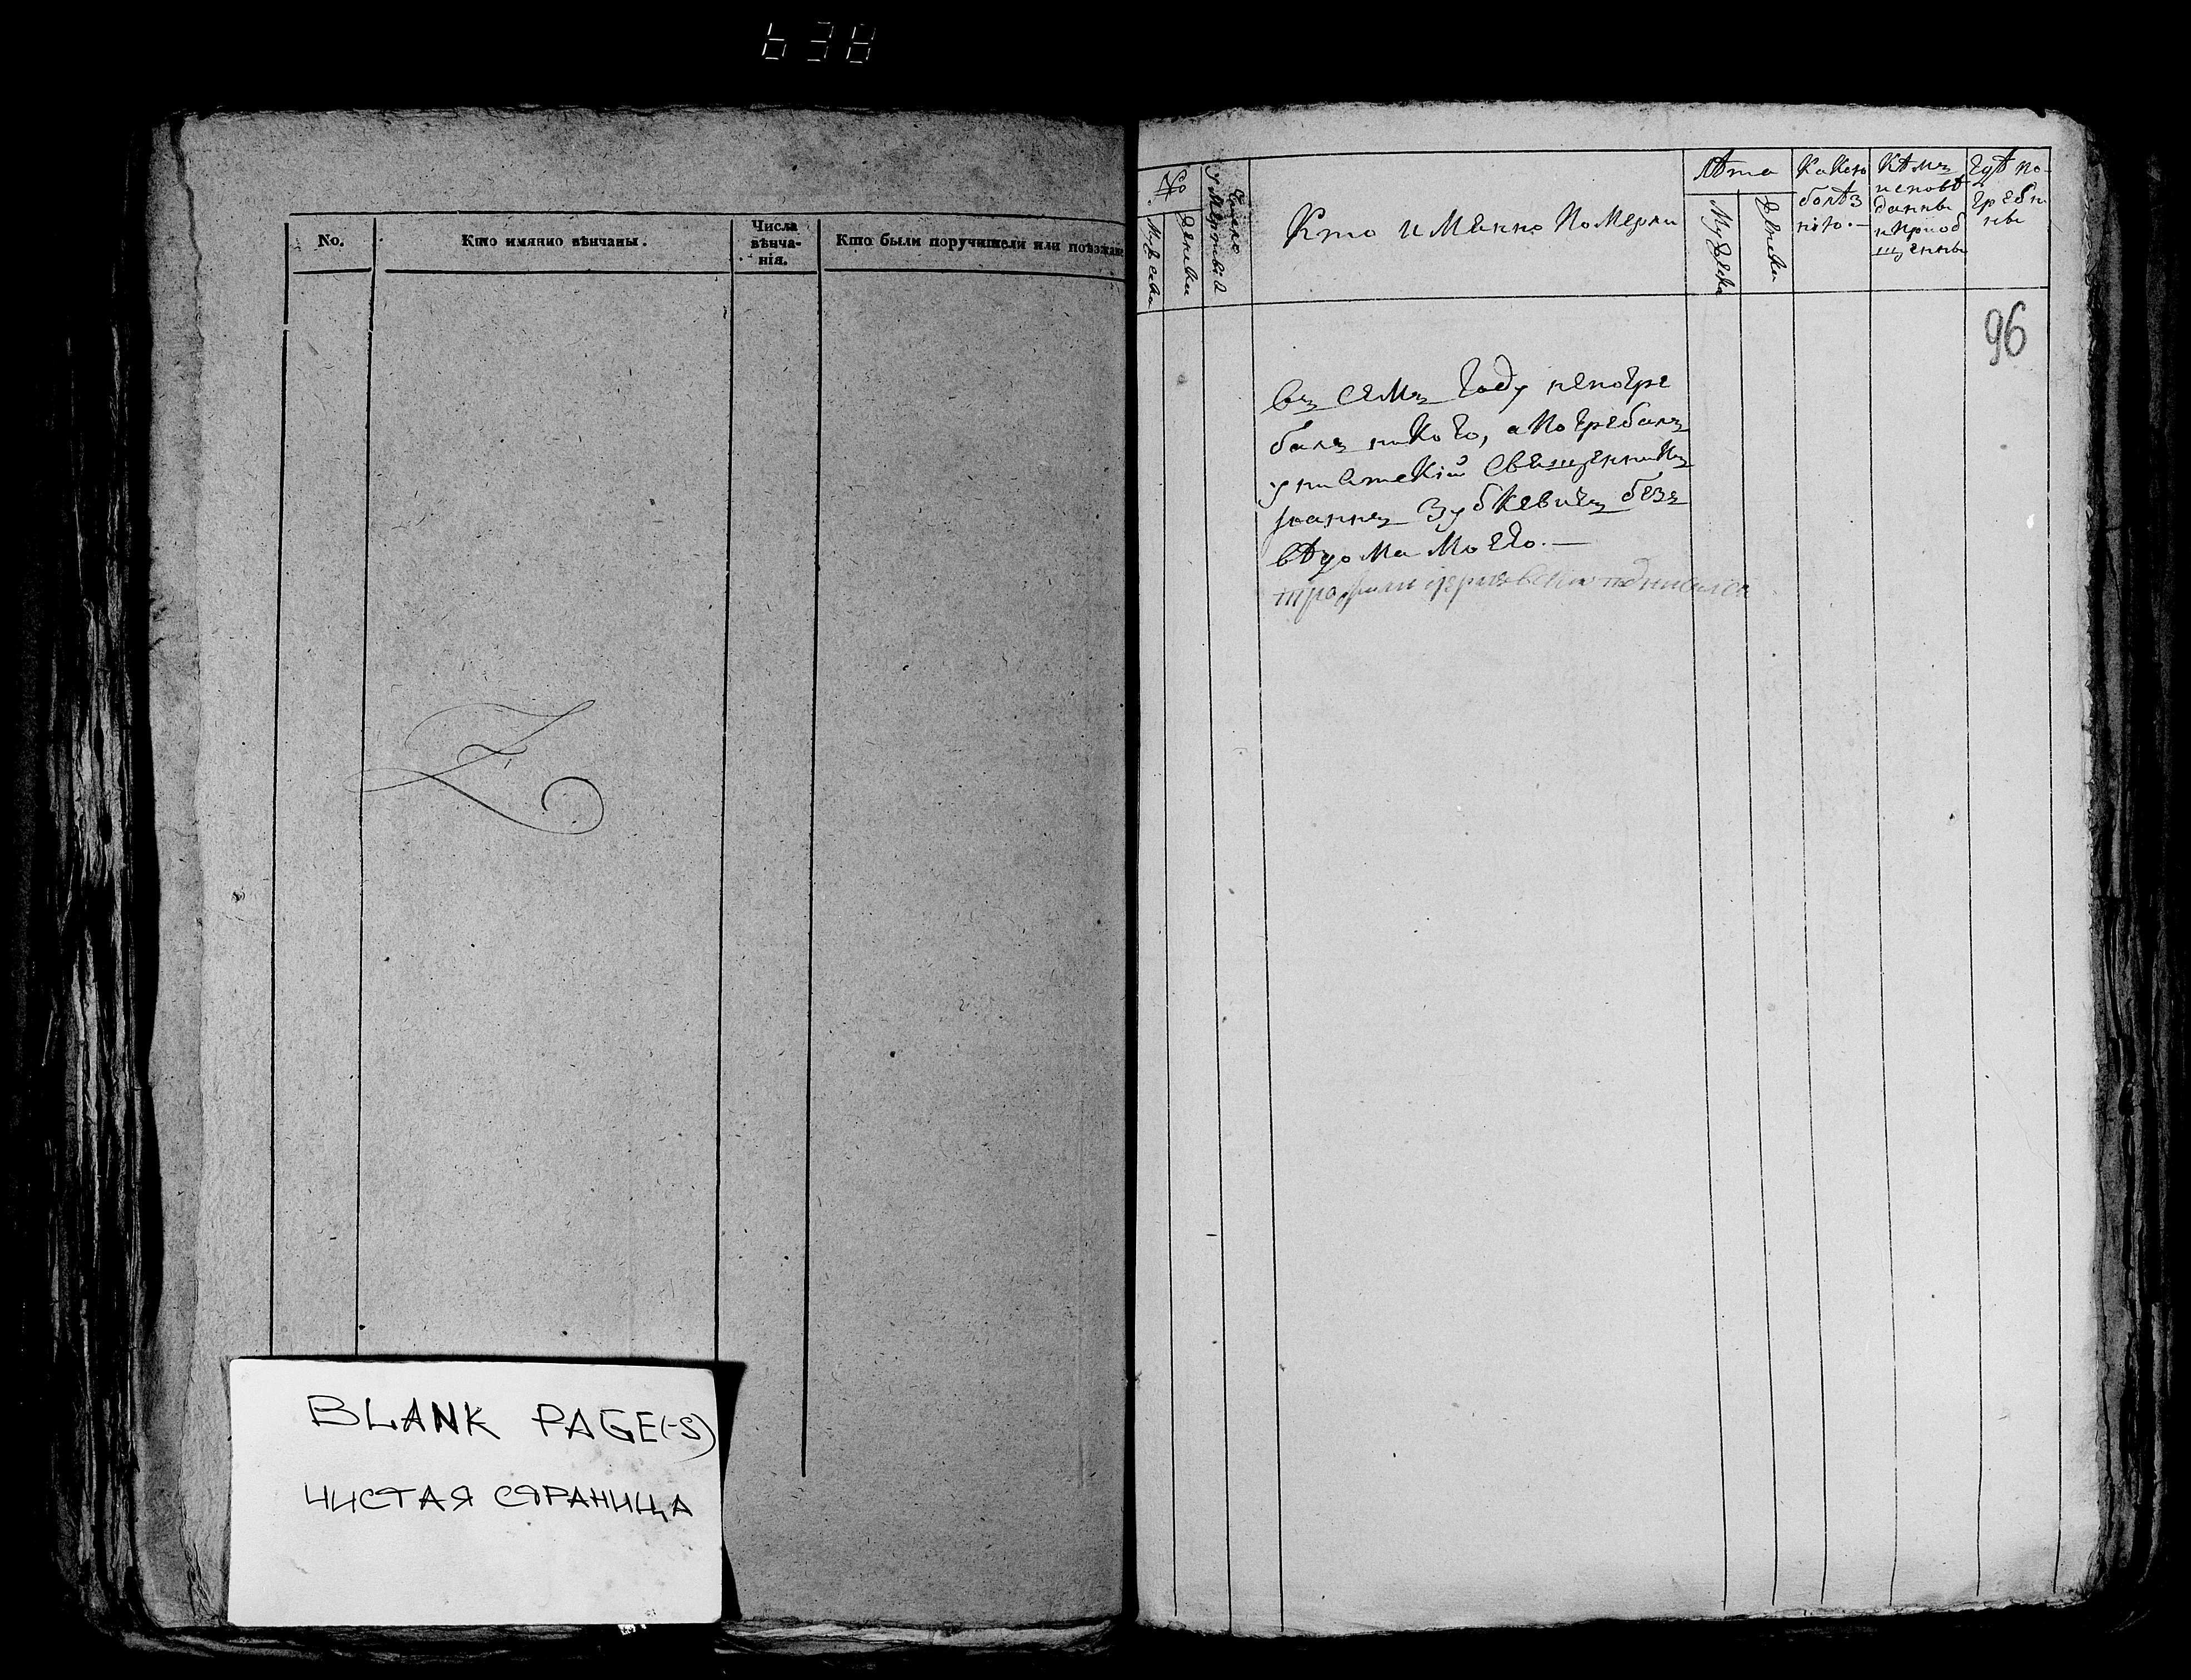 638
No.
Кто имянно вѣнчаны.
Числа
вѣнча-
нія.
Кто были поручители или поѣзжан
BLANK PAGE(-S)
ЧИСТАЯ СТРАНИЦА
No
Мужеска
Женски
Число
умертвій
Кто именно померли
Лѣта
Мужеска
Женски
Какою
болѣз
нію.—
Кѣмъ
исповѣ
данны
и приоб
щенны
Гдѣ по-
гребен
ны
96
въ семъ году непогре
балъ никого, а погребалъ
униатскій священникъ
Іоаннъ Зубкевичъ безъ
вѣдома моего.—
подписался